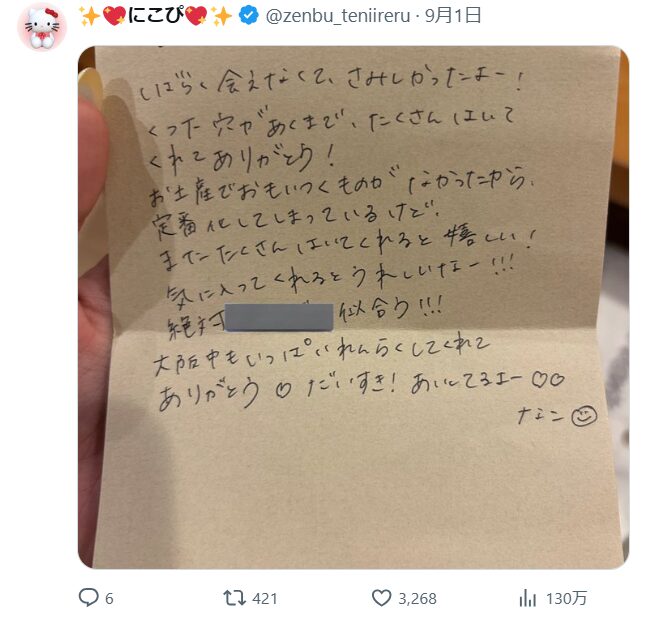 ✨💖にこぴ💖✨ @zenbu_teniireru · 9月1日
しばらく会えなくて、さみしかったよー!
くつた穴があくまで、たくさんはいて
くれてありがとう!
お土産でおもいつくものがなかったから、
定番化してしまっているけど、
またたくさんはいてくれると嬉しい!
気に入ってくれるとうれしいなー!!!
絶対 似合う!!!
大阪中もいっぱいれんらくしてくれて
ありがとう♡ だいすき! あいしてるよー♡♡
ナコ☺
6 421 3,268 130万